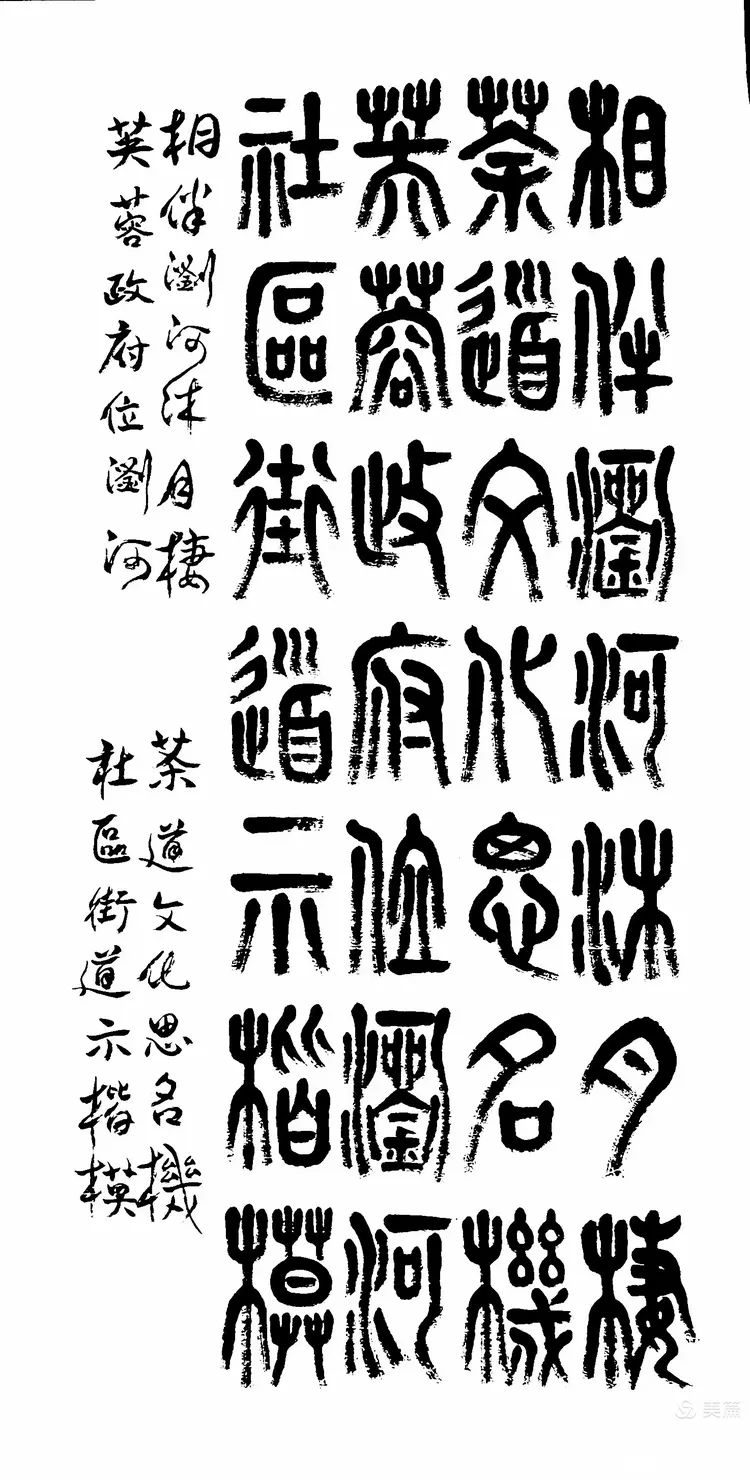 相伴瀏河沐月棲
茶道文化思名機
芙蓉政府位瀏河
社區街道示楷模
相伴瀏河沐月棲
芙蓉政府位瀏河
茶道文化思名機
社區街道示楷模
美篇